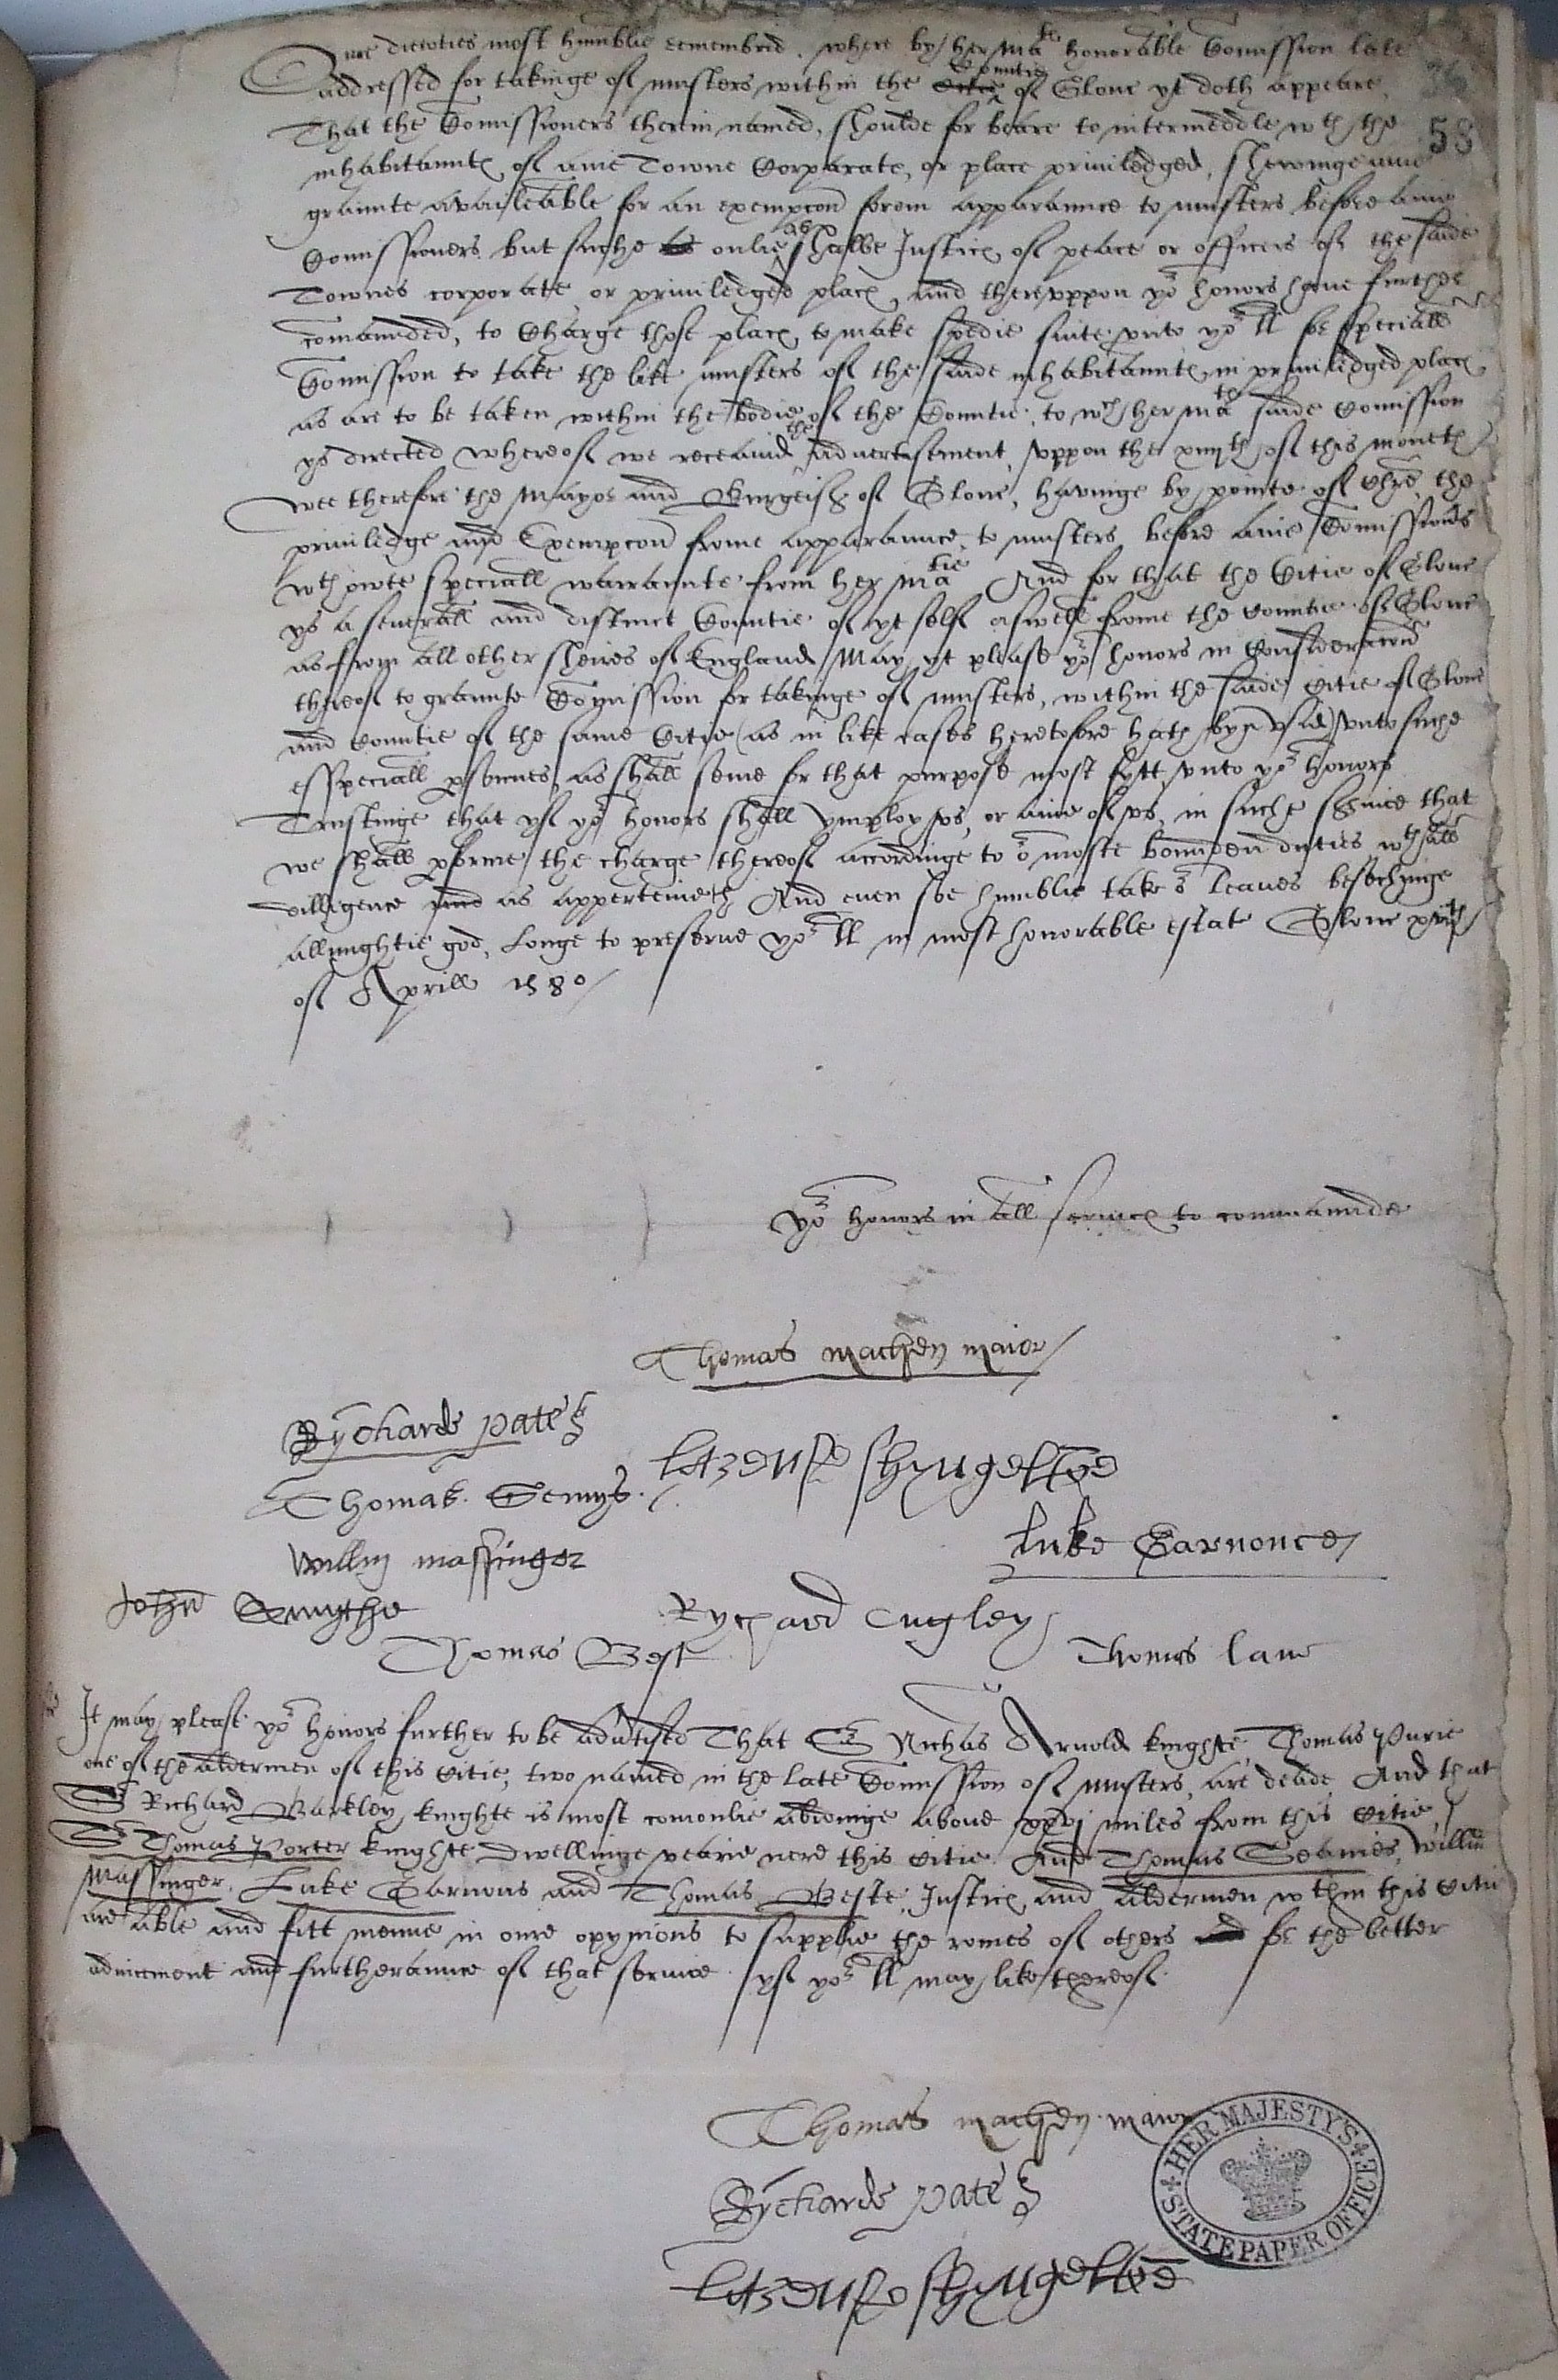 Oure duewties most humblie remembrid. where by her Ma^tes honorable Comission late
36
addressed for takinge of musters within the Citie Countie of Glouc yt doth appeare,
That the Comissioners therein named, shoulde for beare to intermeddle wth the
53
inhabitauntes of anie Towne Corparate, or place priviledged, shewinge anie
graunte availeable for an exempcon from apparaunce to musters before anie
Comissioners but suche as onlie as shalbe Justices of peace or officers of the saide
Townes corporate or priviledged places, and thereuppon yor honors have further
comaunded, to Charge those places to make spedie suite unto yor ll for speciall
Comission to take the like musters of the saide inhabitauntes in priviledged places
as are to be taken within the bodie of the Countie, to wch her Matis saide Comission
ys directed whereof we receavid the advertisement, uppon the xiiijth of this moneth
wee therefore the Mayor and Burgeises of Glouc, havinge by pointe of chre, the
priviledge and Exempcon frome apparaunce to musters before anie Comissioners
wthowte speciall warraunte from her Matie And for that the Citie of Glouc
ys a severall and distinct Countie of yt self aswell frome the Countie of Glouc
as from all other sheires of England May yt please yor honors in Consideracon
thereof to graunte Comission for takinge of musters, within the saide Citie of Glouc
and Countie of the same Citie (as in like cases heretofore hath byn usid) unto suche
esspeciall psonnes, as shall seme for that purpose most fytt unto yor honors
Trustinge that yf yor honors shall ymploy us, or anie of us, in suche service that
we shall pforme the charge thereof accordinge to or moste bounden duties wth all
dilligence and as apperteineth And even soe humblie take or leaves besechinge
allmightie god, Longe to preserve yor ll in most honorable estate Glouc
of Aprill 1580
yor honors in all services to commaunde
Thomas Machen maior
Rycharde Pates
Lawrence Shyngelton
Thomas Semys
Luke Garnonce
Willm Massinger
John Smythe
Rychard Cugley
Thomas Best
Thomas Lane
It may please yor honors further to be advtised That Sr Nichas Arnold knighte, Thomas Purie
one of the aldermen of this Citie, two named in the late Comission of musters, are deade, And that
Sr Richard Barkley knighte is most comonlie abidinge above xxvj miles from this Citie
Sr Thomas Porter knighte dwellinge verie nere this Citie. And Thomas Seames, Willm
Massinger, Luke Garnons and Thomas Beste, Justices and aldermen wthin this Citie
are able and fitt menne in oure opynions to supplie the romes of others and for the better
advicement and furtheraunce of that service yf yor ll may like thereof.
Thomas Machen maior
Rycharde Pates
Lawrence Shyngelton
HER MAJESTY'S
STATE PAPER OFFICE